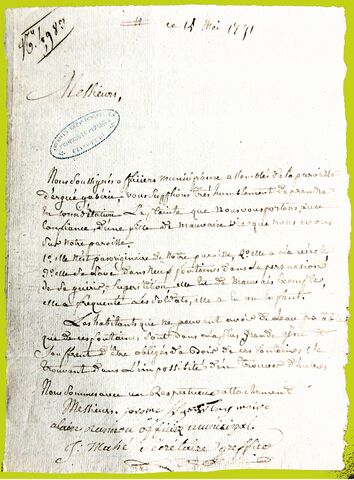 ce 15 Mai 1791
Messieurs,
Nous soussignés officiers municipaux assemblés de la paroisse
d'ergué gabéric, vous supplions très humblement de prendre
en considération La plainte que Nous vous portons avec
confiance, d'une fille de mauvaise vie que nous avons
sur notre paroisse.
1° elle n'est pas originaire de Notre paroisse, 2° elle a la vérole,
3° elle se lave dans nos fontaines dans la persuasion
de se guérir, superstition, elle est de mauvais exemple,
elle a fréquenté les soldats, elle a eu un enfant.
Les habitants qui ne peuvent avoir de l'eau pa
que de ces fontaines sont dans La plus grande
souffrent d'être obligés de boire de ces fontaines, se
trouvant dans L'impossibilité d'en trouver d'autres
Nous sommes avec un Respectueux attachement
Messieurs jerome maire
alain officier municipal
secretaire greffier